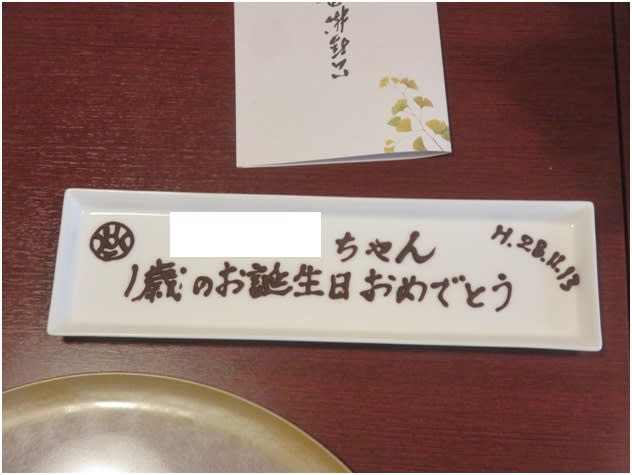 ちゃん
H.28.11.13
1歳のお誕生日おめでとう